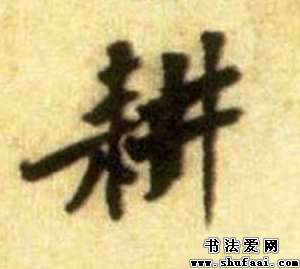 耕
书法爱网
www.shufaai.com